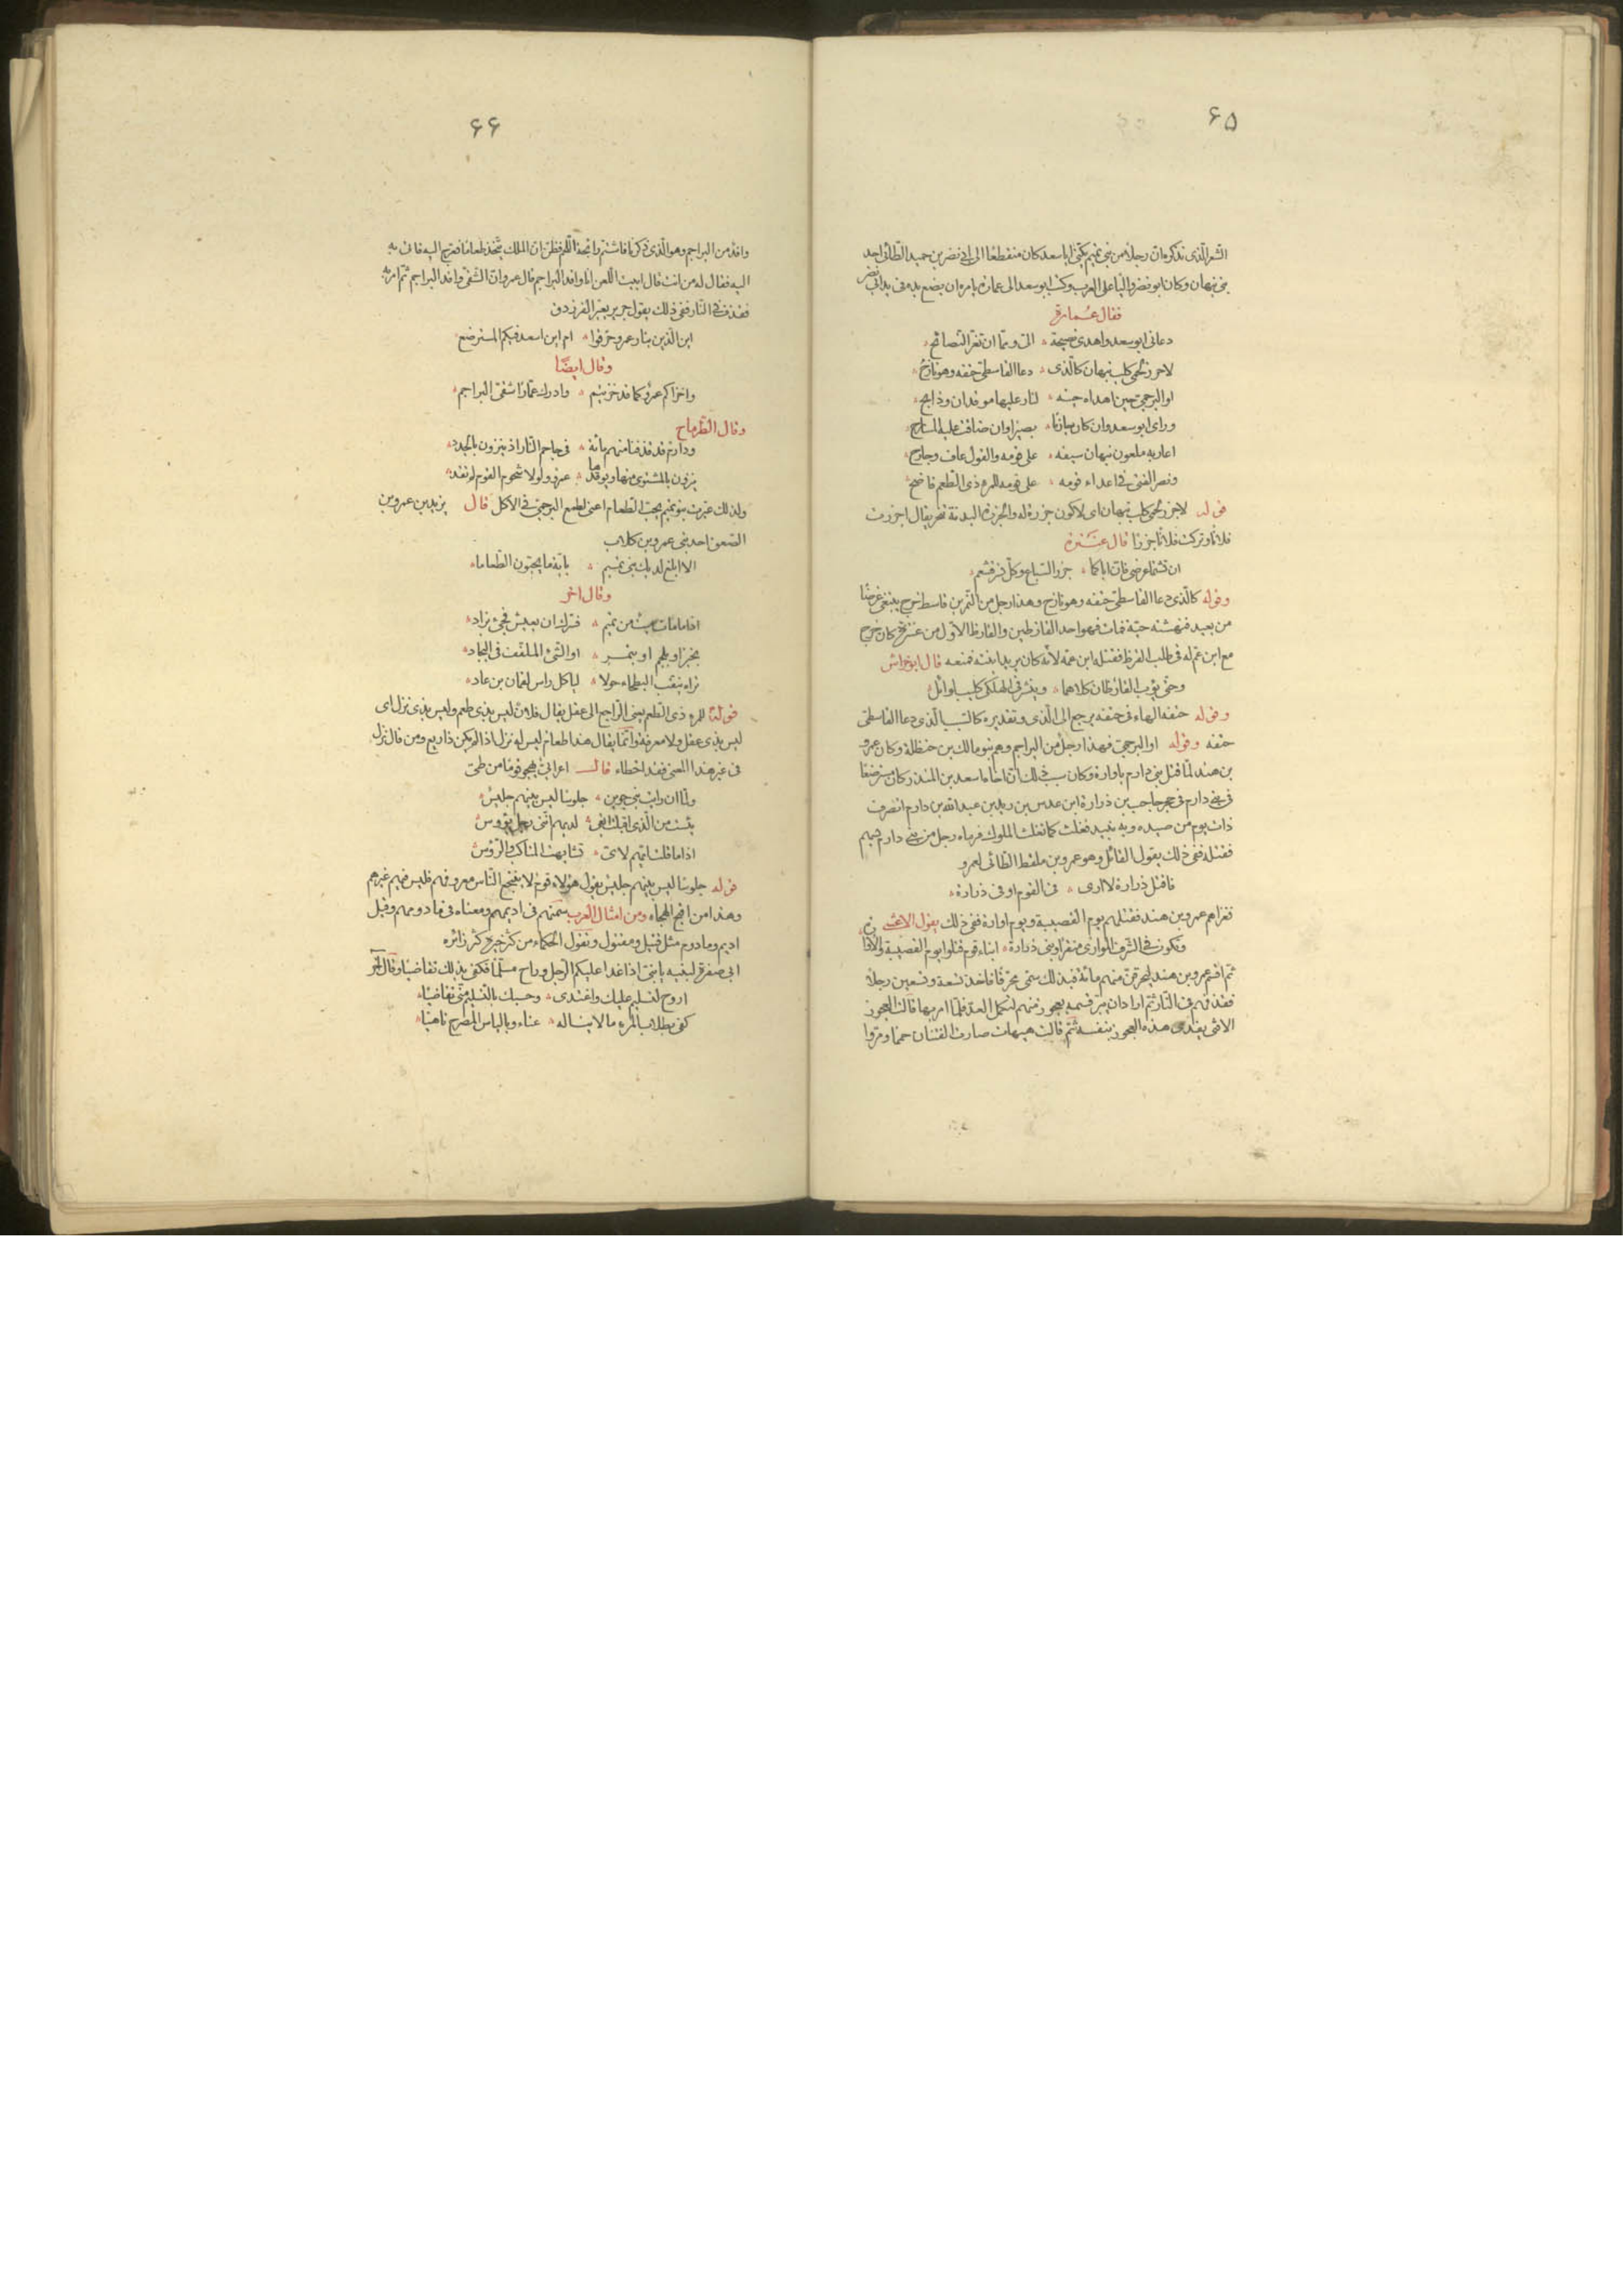 ۶۵
الشعر الذى نذكره ان رجلا من بنى تميم يكنى ابا سعد كان منقطعا الى ابى نصر بن حميد الطائى احد
بنى نبهان وكان ابو نصر واليا على العرب وكتب ابو سعد الى عمارة يامره ان يضع يده فى يد ابى نصر
فقال عمارة
دعانى ابو سعد واهدى نصيحة الى ومما ان تغر النصائح
لاجزر لحمى كلب نبهان كالذى دعا القاسطى حتفه وهو نازح
او البرجمى حين اهداه حينه لنار عليها موقدان وذابح
وراى ابو سعد وان كان حازما بصيرا وان ضاقت عليه المسارح
اعار به ملعون نبهان سيفه على قومه والقول عاف وجارح
ونصر الفتى فى اعداء قومه على قومه للمرء ذى الطعم فاضح
قوله لاجزر لحمى كلب نبهان اى لاكون جزرة له والجزرة البدنة تنحر يقال اجزرت
فلانا وتركت فلانا جزرا قال عنترة
ان تشتما عرضى فان اباكما جزر السباع وكل نسر قشعم
وقوله كالذى دعا القاسطى حتفه وهو نازح وهذا رجل من النمر بن قاسط خرج يبتغى غرضا
من بعيد فنهشته حية فمات فهو احد القارظين والقارظ الاول من عنزة كان خرج
مع ابن عم له فى طلب القرظ فقتله ابن عمه لانه كان يريد ابنته فمنعه قال ابو خراش
وحتى يؤب القارظان كلاهما وينشر فى الهلكى كليب لوائل
وقوله حتفه الهاء فى حتفه يرجع الى الذى وتقديره كالسبب الذى دعا القاسطى
حتفه وقوله او البرجمى فهذا رجل من البراجم وهم بنو مالك بن حنظلة وكان عمرو
بن هند لما قتل بنى دارم باوارة وكان سبب ذلك ان اخاه اسعد بن المنذر وكان مسترضعا
فى بنى دارم فى حجر حاجب بن زرارة ابن عدس بن زيد بن عبد الله بن دارم انصرف
ذات يوم من صيده وبه نبيذ فعبث كما تعبث الملوك فرماه رجل من بنى دارم بسهم
فقتله ففى ذلك يقول القائل وهو عمرو بن ملقط الطائى لعمرو
فاقتل زرارة لا ارى فى القوم اوفى من زرارة
فغزاهم عمرو بن هند فقتلهم يوم القصيبة ويوم اوارة ففى ذلك يقول الاعشى
وتكون فى الشرف الموازى منقرا وبنى زرارة ابناء قوم قتلوا يوم القصيبة والاوارة
ثم اقسم عمرو بن هند ليحرقن منهم مائة فبذلك سمى محرقا فاخذ تسعة وتسعين رجلا
فقذفهم فى النار ثم اراد ان يبر قسمه بعجوز منهم لتكمل العدة فلما امر بها قالت العجوز
الا فتى يفدى هذه العجوز بنفسه ثم قالت هيهات صارت الفتيان حمما ومر
۶۶
وافد من البراجم وهو الذى ذكرنا فاشتم رائحة اللحم فظن ان الملك يتخذ طعاما فعرج اليه فاتى به
اليه فقال له من انت فقال ابيت اللعن انا وافد البراجم قال عمرو ان الشقى وافد البراجم ثم امر به
فقذف فى النار ففى ذلك يقول جرير يعير الفرزدق
اين الذين بنار عمرو حرقوا ام اين اسعد فيكم المسترضع
وقال ايضا
واخزاكم عمرو كما قد خزيتم وادرك عمارا شقى البراجم
وقال الطرماح
ودارم قد قذفنا منهم مائة فى جاحم النار اذ ينزون بالجدد
ينزون بالمشتوى منها ويوقدها عمرو ولولا شحوم القوم لم تقد
ولذلك عيرت بنو تميم بحب الطعام اعنى لطمع البرجمى فى الاكل قال يزيد بن عمرو بن
الصعق احد بنى عمرو بن كلاب
الا ابلغ لديك بنى تميم باية ما يحبون الطعاما
وقال اخر
اذا ما مات ميت من تميم فسرك ان يعيش فجئ بزاد
بخبز او بلحم او بتمر او الشئ الملفف فى البجاد
تراه ينقب البطحاء حولا لياكل راس لقمان بن عاد
قوله للمرء ذى الطعم يعنى الراجع الى عقل يقال فلان ليس بذى طعم وليس بذى نزل اى
ليس بذى عقل ولا معرفة وانما يقال هذا طعام ليس له نزل اذا لم يكن ذا ريع ومن قال نزل
فى غير هذا المعنى فقد اخطاء قال اعرابى يهجو قوما من طى
ولما ان رايت بنى جوين جلوسا ليس بينهم جليس
يئست من الذى اقبلت ابغى لديهم اننى رجل يؤوس
اذا ما قلت ايهم لاى تشابهت المناكب والرؤس
قوله جلوسا ليس بينهم جليس يقول هؤلاء قوم لا ينتجع الناس معروفهم فليس فيهم غيرهم
وهذا من اقبح الهجاء ومن امثال العرب سمنهم فى اديمهم ومعناه فى مادومهم وقيل
اديم ومادوم مثل قتيل ومقتول وتقول الحكماء من كثر خيره كثر زائره
ابى صفرة لبنيه يا بنى اذا غدا عليكم الرجل وراح مسلما فكفى بذلك تقاضيا وقال اخر
اروح لتسليم عليك واغتدى وحسبك بالتسليم منى تقاضيا
كفى بطلاب المرء ما لا يناله عناء وبالياس المصرح ناهيا